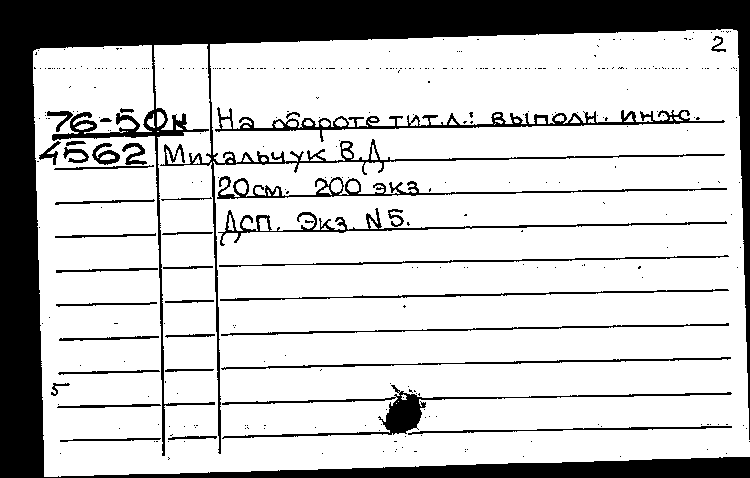 2
76-50н На обороте тит.л.: выполн. инж.
4562 Михальчук В.Д.
20см. 200 экз.
Дсп. Экз. N5.
5